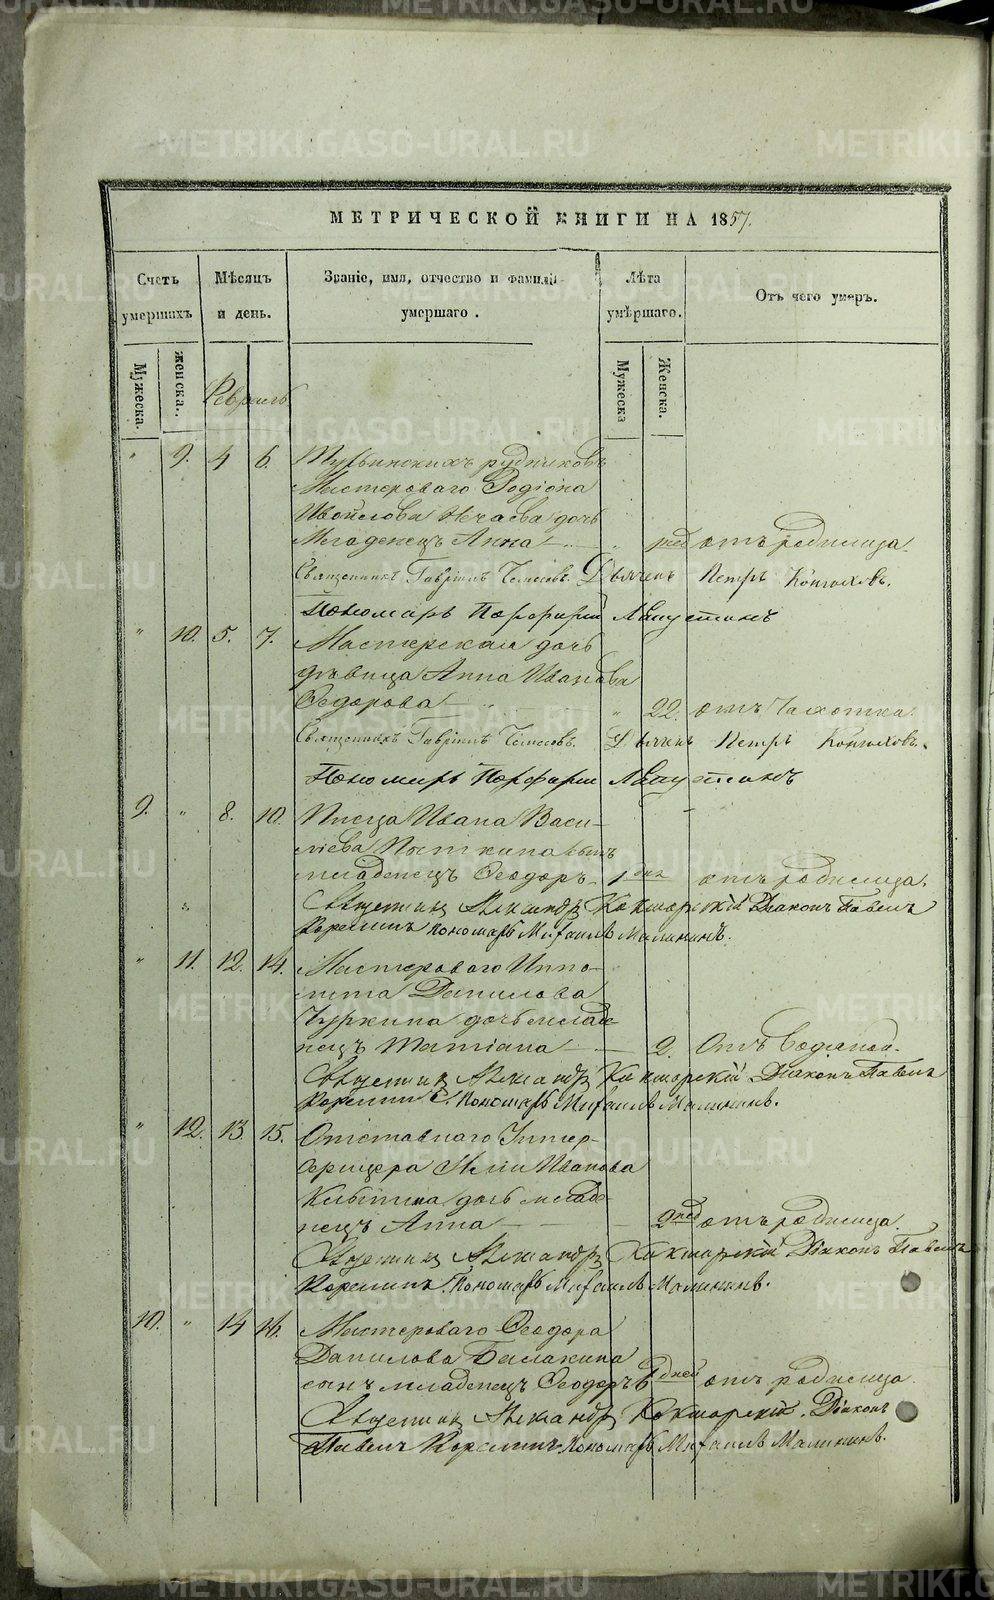 МЕТРИЧЕСКОЙ КНИГИ НА 1857.
Счетъ умершихъ
Мѣсяцъ и день.
Званіе, имя, отчество и фамилія умершаго.
Лѣта умершаго.
Отъ чего умеръ.
Мужеска.
Женска.
Февраль
Мужеска
Женска.
" 9. 4 6. Турьинскихъ рудниковъ
Мастероваго Родіона
Нечаева дочь
Младенецъ Анна — " отъ родимца.
Священникъ Гавріилъ Дьячекъ Петръ Конюховъ.
Пономарь Порфирій Августинъ
" 10. 5. 7. Мастерская дочь
дѣвица Анна Иванова
Ѳедорова — " 22. отъ Чахотки.
Священникъ Гавріилъ Дьячекъ Петръ Конюховъ.
Пономарь Порфирій Августинъ
9. " 8. 10. Писца Ивана Васи-
лiева сынъ
младенецъ Ѳеодоръ 1 дня отъ родимца.
Священникъ Александръ Кокшарскій Діаконъ Павелъ
Корелинъ Пономарь Михаилъ Малининъ.
" 11. 12. 14. Мастероваго Иппо-
лита Данилова
Чуркина дочь младе-
нецъ Татіана — 2. Отъ водяной.
Священникъ Александръ Кокшарскій Діаконъ Павелъ
Корелинъ. Пономарь Михаилъ Малининъ.
" 12. 13. 15. Отставнаго Унтер-
офицера Иванова
дочь младе-
нецъ Анна — 2 нед отъ родимца.
Священникъ Александръ Кокшарскій Діаконъ Павелъ
Корелинъ. Пономарь Михаилъ Малининъ.
10. " 14 16. Мастероваго Ѳеодора
Данилова Балакина
сынъ младенецъ Ѳеодоръ 6 дней отъ родимца.
Священникъ Александръ Кокшарскій. Діаконъ
Павелъ Корелинъ. Пономарь Михаилъ Малининъ.
METRIKI.GASO-URAL.RU